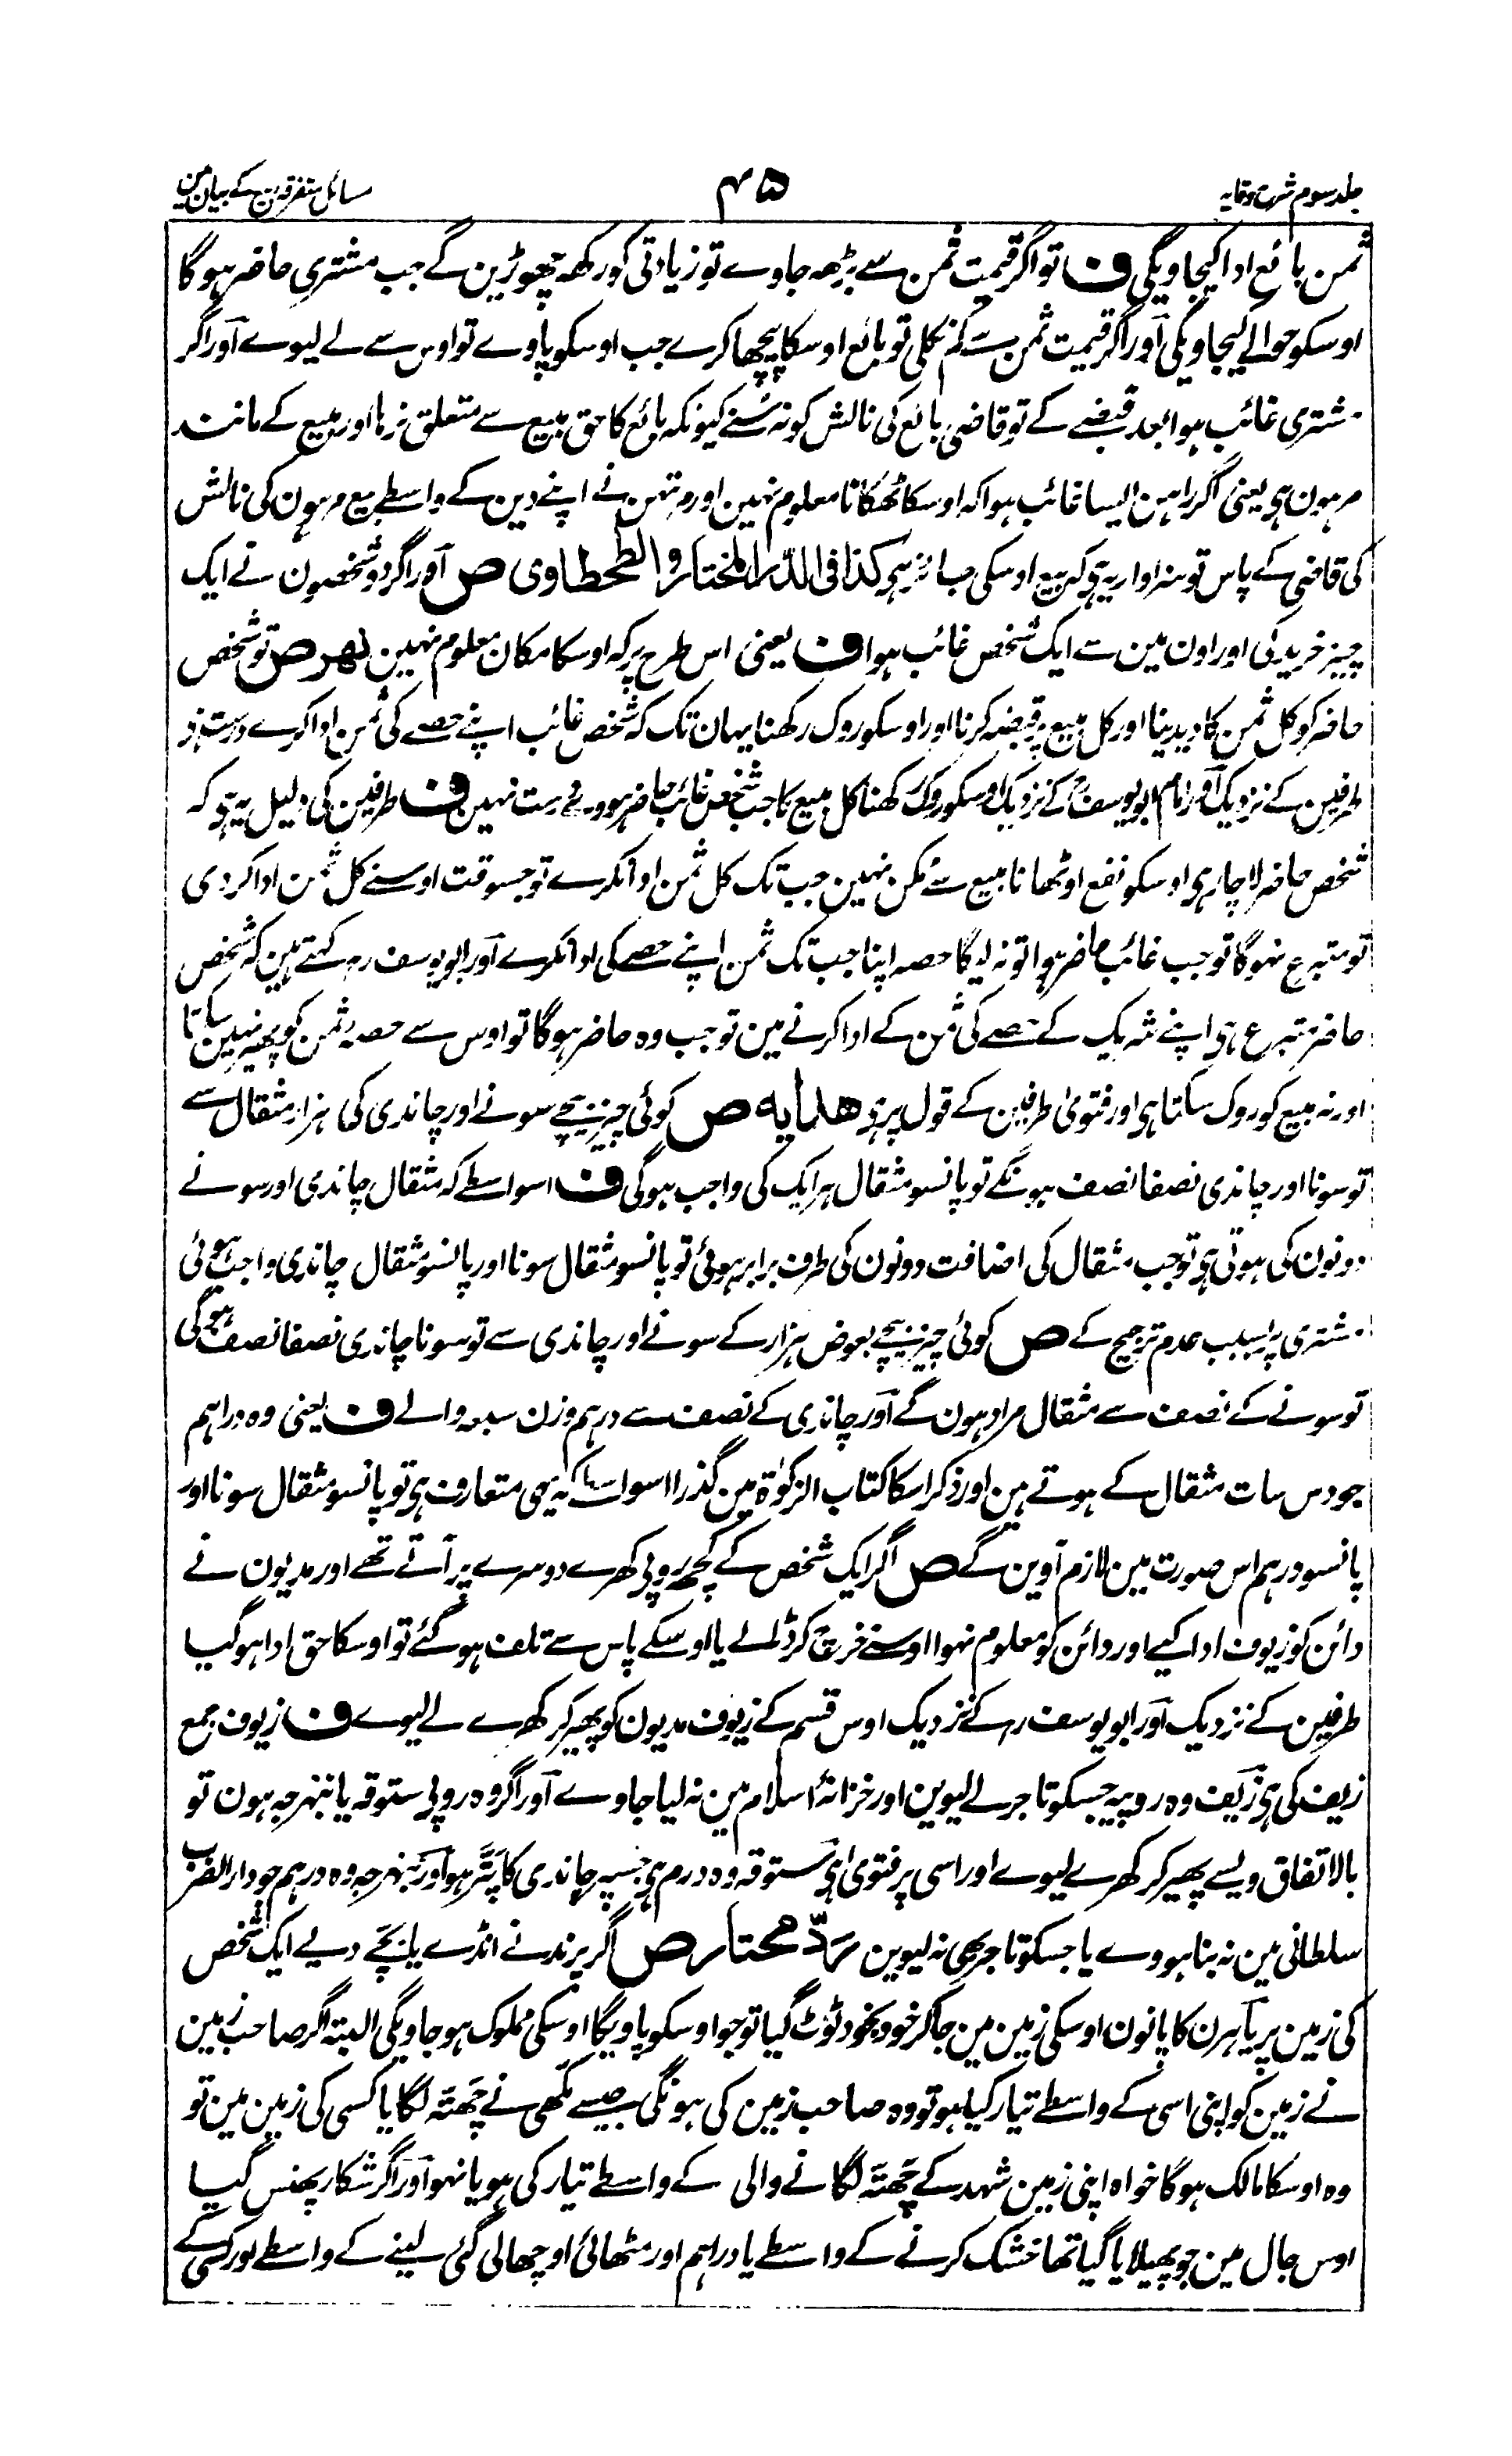 جلد سوم شرح وقایہ
۴۵
مسائل متفرقہ کے بیان مین
ثمن بائع ادا کیجاویگی ف تو اگر قیمت ثمن سے بڑھ جاوے تو زیادتی کو رکھ چھوڑین گے جب مشتری حاضر ہوگا
اوسکو حوالے کیجاویگی اور اگر قیمت ثمن سے کم نکلی تو بائع اوسکا پیچھا کرے جب اوسکو پاوے تو اوس سے لے لیوے اور اگر
مشتری غائب ہوا بعد قبضے کے تو قاضی بائع کی نالش کو نہ سنے کیونکہ بائع کا حق مبیع سے متعلق نرہا اور مبیع کے مانند
مرہون ہی یعنی اگر راہن ایسا غائب ہوا کہ اوسکا ٹھکانا معلوم نہین اور مرتہن نے اپنے دین کے واسطے بیع مرہون کی نالش
کی قاضی کے پاس تو سزاوار یہ ہی کہ بیع اوسکی جائز ہی کذا فی الدر المختار و الطحطاوی ص اور اگر دو شخصون نے ایک
چیز خریدی اور اون مین سے ایک شخص غائب ہوا ف یعنی اس طرح پر کہ اوسکا مکان معلوم نہین نہر ص تو شخص
حاضر کو کل ثمن کا دیدینا اور کل مبیع پر قبضہ کرنا اور اوسکو روک رکھنا یہان تک کہ شخص غائب اپنے حصے کی ثمن ادا کرے درست ہی
طرفین کے نزدیک اور امام ابو یوسف رح کے نزدیک اوسکو روک رکھنا کل مبیع کا جب شخص غائب حاضر ہووے درست نہین ف طرفین کی دلیل یہ ہی کہ
شخص حاضر لاچار ہی اوسکو نفع اوٹھانا مبیع سے ممکن نہین جب تک کل ثمن ادا نکرے تو جسوقت اوسنے کل ثمن ادا کردی
تو متبرع نہوگا تو جب غائب حاضر ہوا تو نہ لیگا حصہ اپنا جب تک ثمن اپنے حصے کی ادا نکرے اور ابو یوسف رہ کہتے ہین کہ شخص
حاضر متبرع ہی اپنے شریک کے حصے کی ثمن کے ادا کرنے مین تو جب وہ حاضر ہوگا تو اوس سے حصہ ثمن کو پھیر نہین سکتا
اور نہ مبیع کو روک سکتا ہی اور فتویٰ طرفین کے قول پر ہی ھدایہ ص کوئی چیز بیچے سونے اور چاندی کی ہزار مثقال سے
تو سونا اور چاندی نصفا نصف ہونگے تو پانسو مثقال ہر ایک کی واجب ہوگی ف اسواسطے کہ مثقال چاندی اور سونے
دونون کی ہوتی ہی تو جب مثقال کی اضافت دونون کی طرف برابر ہوئی تو پانسو مثقال سونا اور پانسو مثقال چاندی واجب ہوئی
مشتری پر بسبب عدم ترجیح کے ص کوئی چیز بیچے بعوض ہزار کے سونے اور چاندی سے تو سونا چاندی نصفا نصف ہوگی
تو سونے کے نصف سے مثقال مراد ہون گے اور چاندی کے نصف سے درہم وزن سبعہ والے ف یعنی وہ دراہم
جو دس سات مثقال کے ہوتے ہین اور ذکر اسکا کتاب الزکوٰة مین گذرا اسواسطے کہ یہی متعارف ہی تو پانسو مثقال سونا اور
پانسو درہم اس صورت مین لازم آوین گے ص اگر ایک شخص کے کچھ روپی کھرے دوسرے پر آتے تھے اور مدیون نے
دائن کو زیوف ادا کیے اور دائن کو معلوم نہوا اوسنے خرچ کر ڈالے یا اوسکے پاس سے تلف ہوگئے تو اوسکا حق ادا ہوگیا
طرفین کے نزدیک اور ابو یوسف رہ کے نزدیک اوس قسم کے زیوف مدیون کو پھیر کر کھرے لے لیوے ف زیوف جمع
زیف کی ہی زیف وہ روپیہ جسکو تاجر لے لیوین اور خزانۂ اسلام مین نہ لیا جاوے اور اگر وہ روپی ستوقہ یا نبہرجہ ہون تو
بالاتفاق ویسے پھیر کر کھرے لیوے اور اسی پر فتویٰ ہی ستوقہ وہ درم ہی جسپہ چاندی کا پتر ہو اور نبہرجہ وہ درہم جو دارالضرب
سلطانی مین نہ بنا ہووے یا جسکو تاجر بھی نہ لیوین ردّ محتار ص اگر پرند نے انڈے یا بچے دیے ایک شخص
کی زمین پر یا ہرن کا پانون اوسکی زمین مین جاکر خود بخود ٹوٹ گیا تو جو اوسکو پاویگا اوسکی مملوک ہوجاویگی البتہ اگر صاحب زمین
نے زمین کو اپنی اسی کے واسطے تیار کیا ہو تو وہ صاحب زمین کی ہونگی جیسے مکھی نے چھتہ لگایا کسی کی زمین مین تو
وہ اوسکا مالک ہوگا خواہ اپنی زمین شہد کے چھتہ لگانے والی کے واسطے تیار کی ہو یا نہو اور اگر شکار پھنس گیا
اوس جال مین جو پھیلایا گیا تھا خشک کرنے کے واسطے یا دراہم اور مٹھائی اوچھالی گئی لینے کے واسطے اور کسی کے